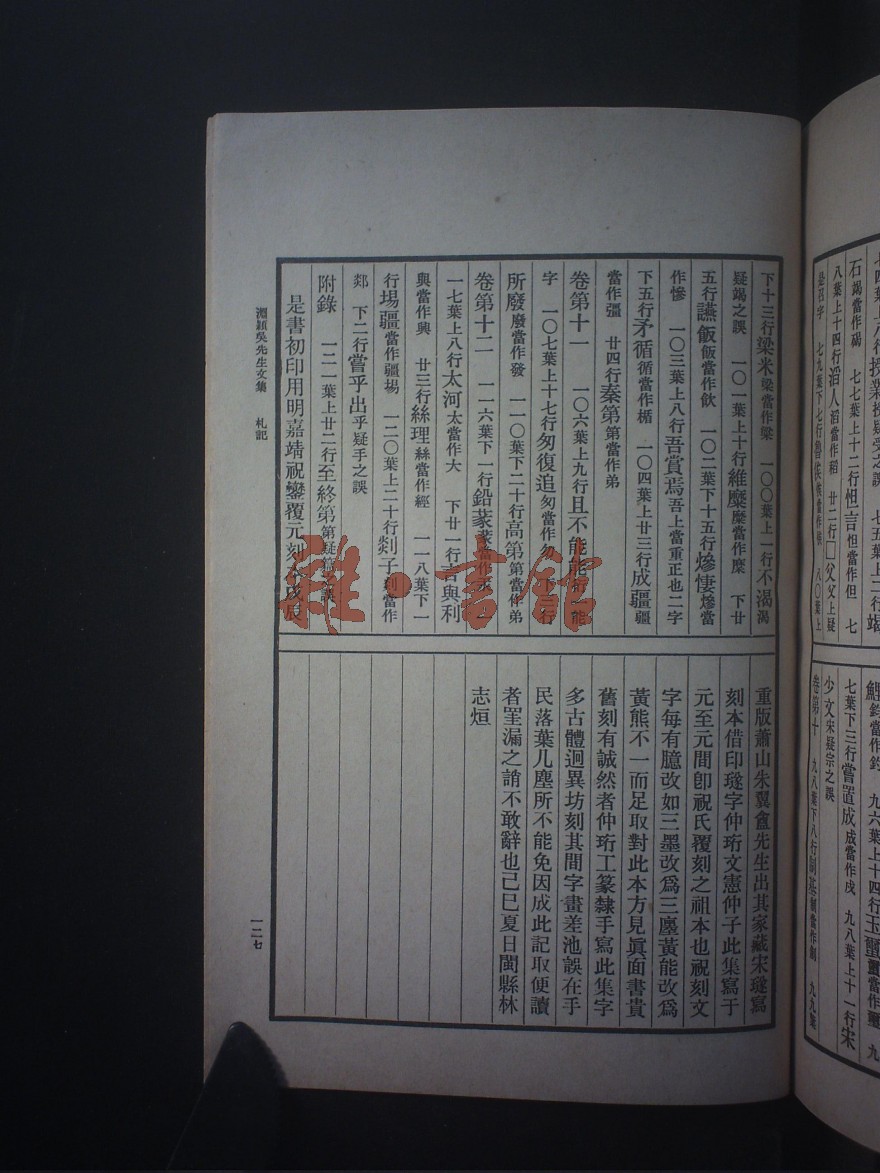 石碣當作碣 七七葉上十二行怛言怛當作但 七
八葉上十四行滔人滔當作稻 廿二行□父父上疑
七葉下三行嘗置成成當作戍 九八葉上十一行宋
少文宋疑宗之誤
下十三行梁米梁當作粱 一〇〇葉上一行不渴渴
疑竭之誤 一〇一葉上十行維糜糜當作縻 下廿
五行讌飯飯當作飲 一〇二葉下十五行熮悽熮當
作憀 一〇三葉上八行吾賞焉吾上當重正也二字
下五行矛循循當作楯 一〇四葉上廿三行成疆疆
當作彊 廿四行秦第第當作弟
卷第十一 一〇六葉上九行且不能能衍一能
字 一〇七葉上十七行匆復追匆當作勿 下一行
所廢廢當作發 一一〇葉下二十行高第第當作弟
卷第十二 一一六葉下一行鉛
一七葉上八行太河太當作大 下廿一行言與利
與當作興 廿三行絲理絲當作經 一一八葉下一
行場疆當作疆場 一二〇葉上二十行剡子剡當作
郯 下二行嘗乎出乎疑手之誤
附錄 一二一葉上廿二行至終第第疑篇之誤
是書初印用明嘉靖祝鑾覆元刻本戊辰
重版蕭山朱翼盦先生出其家藏宋璲寫
刻本借印璲字仲珩文憲仲子此集寫于
元至元間卽祝氏覆刻之祖本也祝刻文
字每有臆改如三墨改爲三廛黃能改爲
黃熊不一而足取對此本方見眞面書貴
舊刻有誠然者仲珩工篆隸手寫此集字
多古體迥異坊刻其間字畫差池誤在手
民落葉几塵所不能免因成此記取便讀
者罣漏之誚不敢辭也己巳夏日閩縣林
志烜
淵頴吳先生文集 札記
一二七
雜·書館